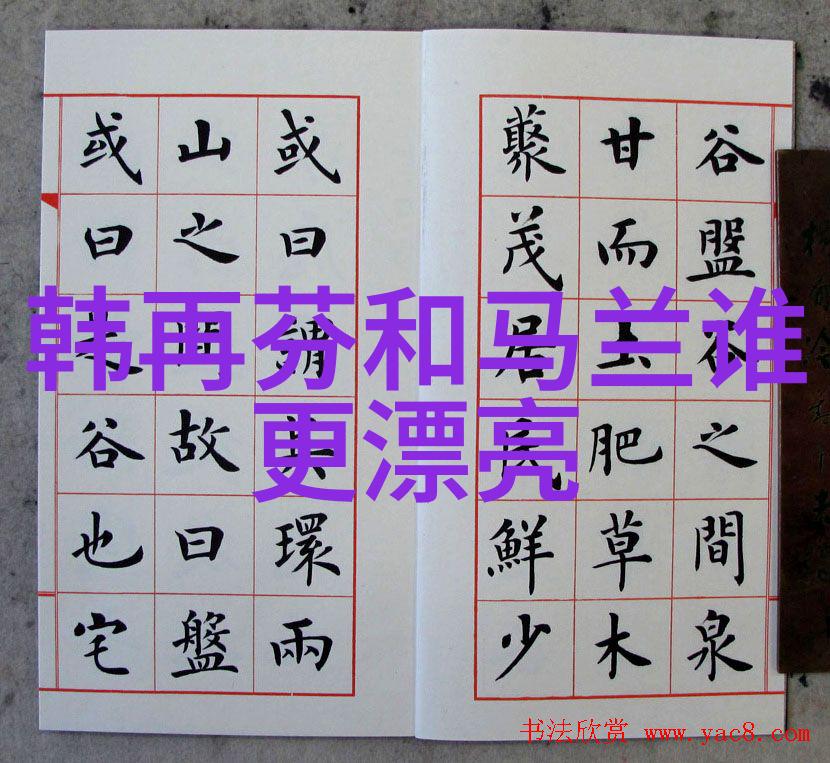 韩再芬和马兰谁
更漂亮
谷盤谷之間泉
甘而土肥草木
藂茂居民鮮少
或曰謂其環兩
山之間故曰盤
或曰是谷也宅
书法欣赏 www.yac8.com